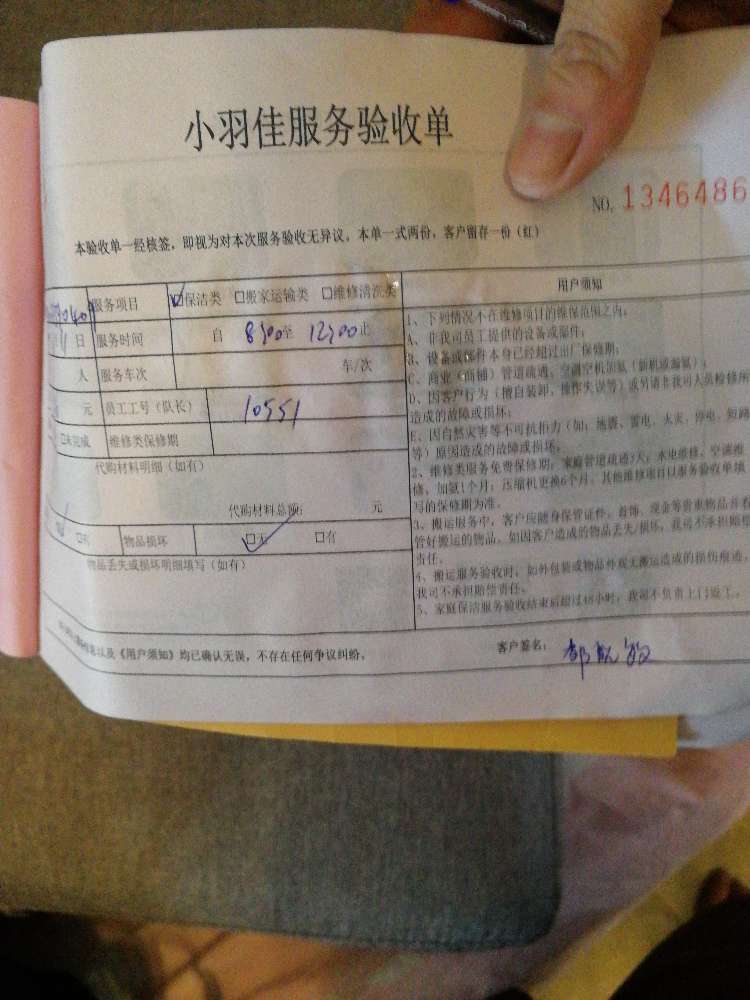 小羽佳服务验收单
NO. 1346486
本验收单一经核签，即视为对本次服务验收无异议，本单一式两份，客户留存一份（红）
服务项目 ☑保洁类 □搬家运输类 □维修清洗类
日 服务时间 自 8:00至 12:00止
人 服务车次 车/次
元 员工工号（队长） 10551
□未完成 维修类保修期
代购材料明细（如有）
代购材料总额： 元
□有 物品损坏 ☑无 □有
物品丢失或损坏明细填写（如有）
用户须知
1、下列情况不在维修项目的维保范围之内：
A、非我司员工提供的设备或部件；
B、设备或部件本身已经超过出厂保修期；
C、商业（商铺）管道疏通、空调空机加氟（新机或漏氟）；
D、因客户行为（擅自装卸、操作失误等）或另请非我司人员检修所
造成的故障或损坏；
E、因自然灾害等不可抗拒力（如：地震、雷电、火灾、停电、短路
等）原因造成的故障或损坏；
2、维修类服务免费保修期：家庭管道疏通7天，水电维修、空调维
修、加氟1个月；压缩机更换6个月。其他维修项目以服务验收单填
写的保修期为准。
3、搬运服务中，客户应随身保管证件、首饰、现金等贵重物品并看
管好搬运的物品。如因客户造成的物品丢失/损坏，我司不承担赔偿
责任。
4、搬运服务验收时，如外包装或物品外观无搬运造成的损伤痕迹，
我司不承担赔偿责任。
5、家庭保洁服务验收结束后超过48小时，我司不负责上门返工。
以及《用户须知》均已确认无误，不存在任何争议纠纷。
客户签名：